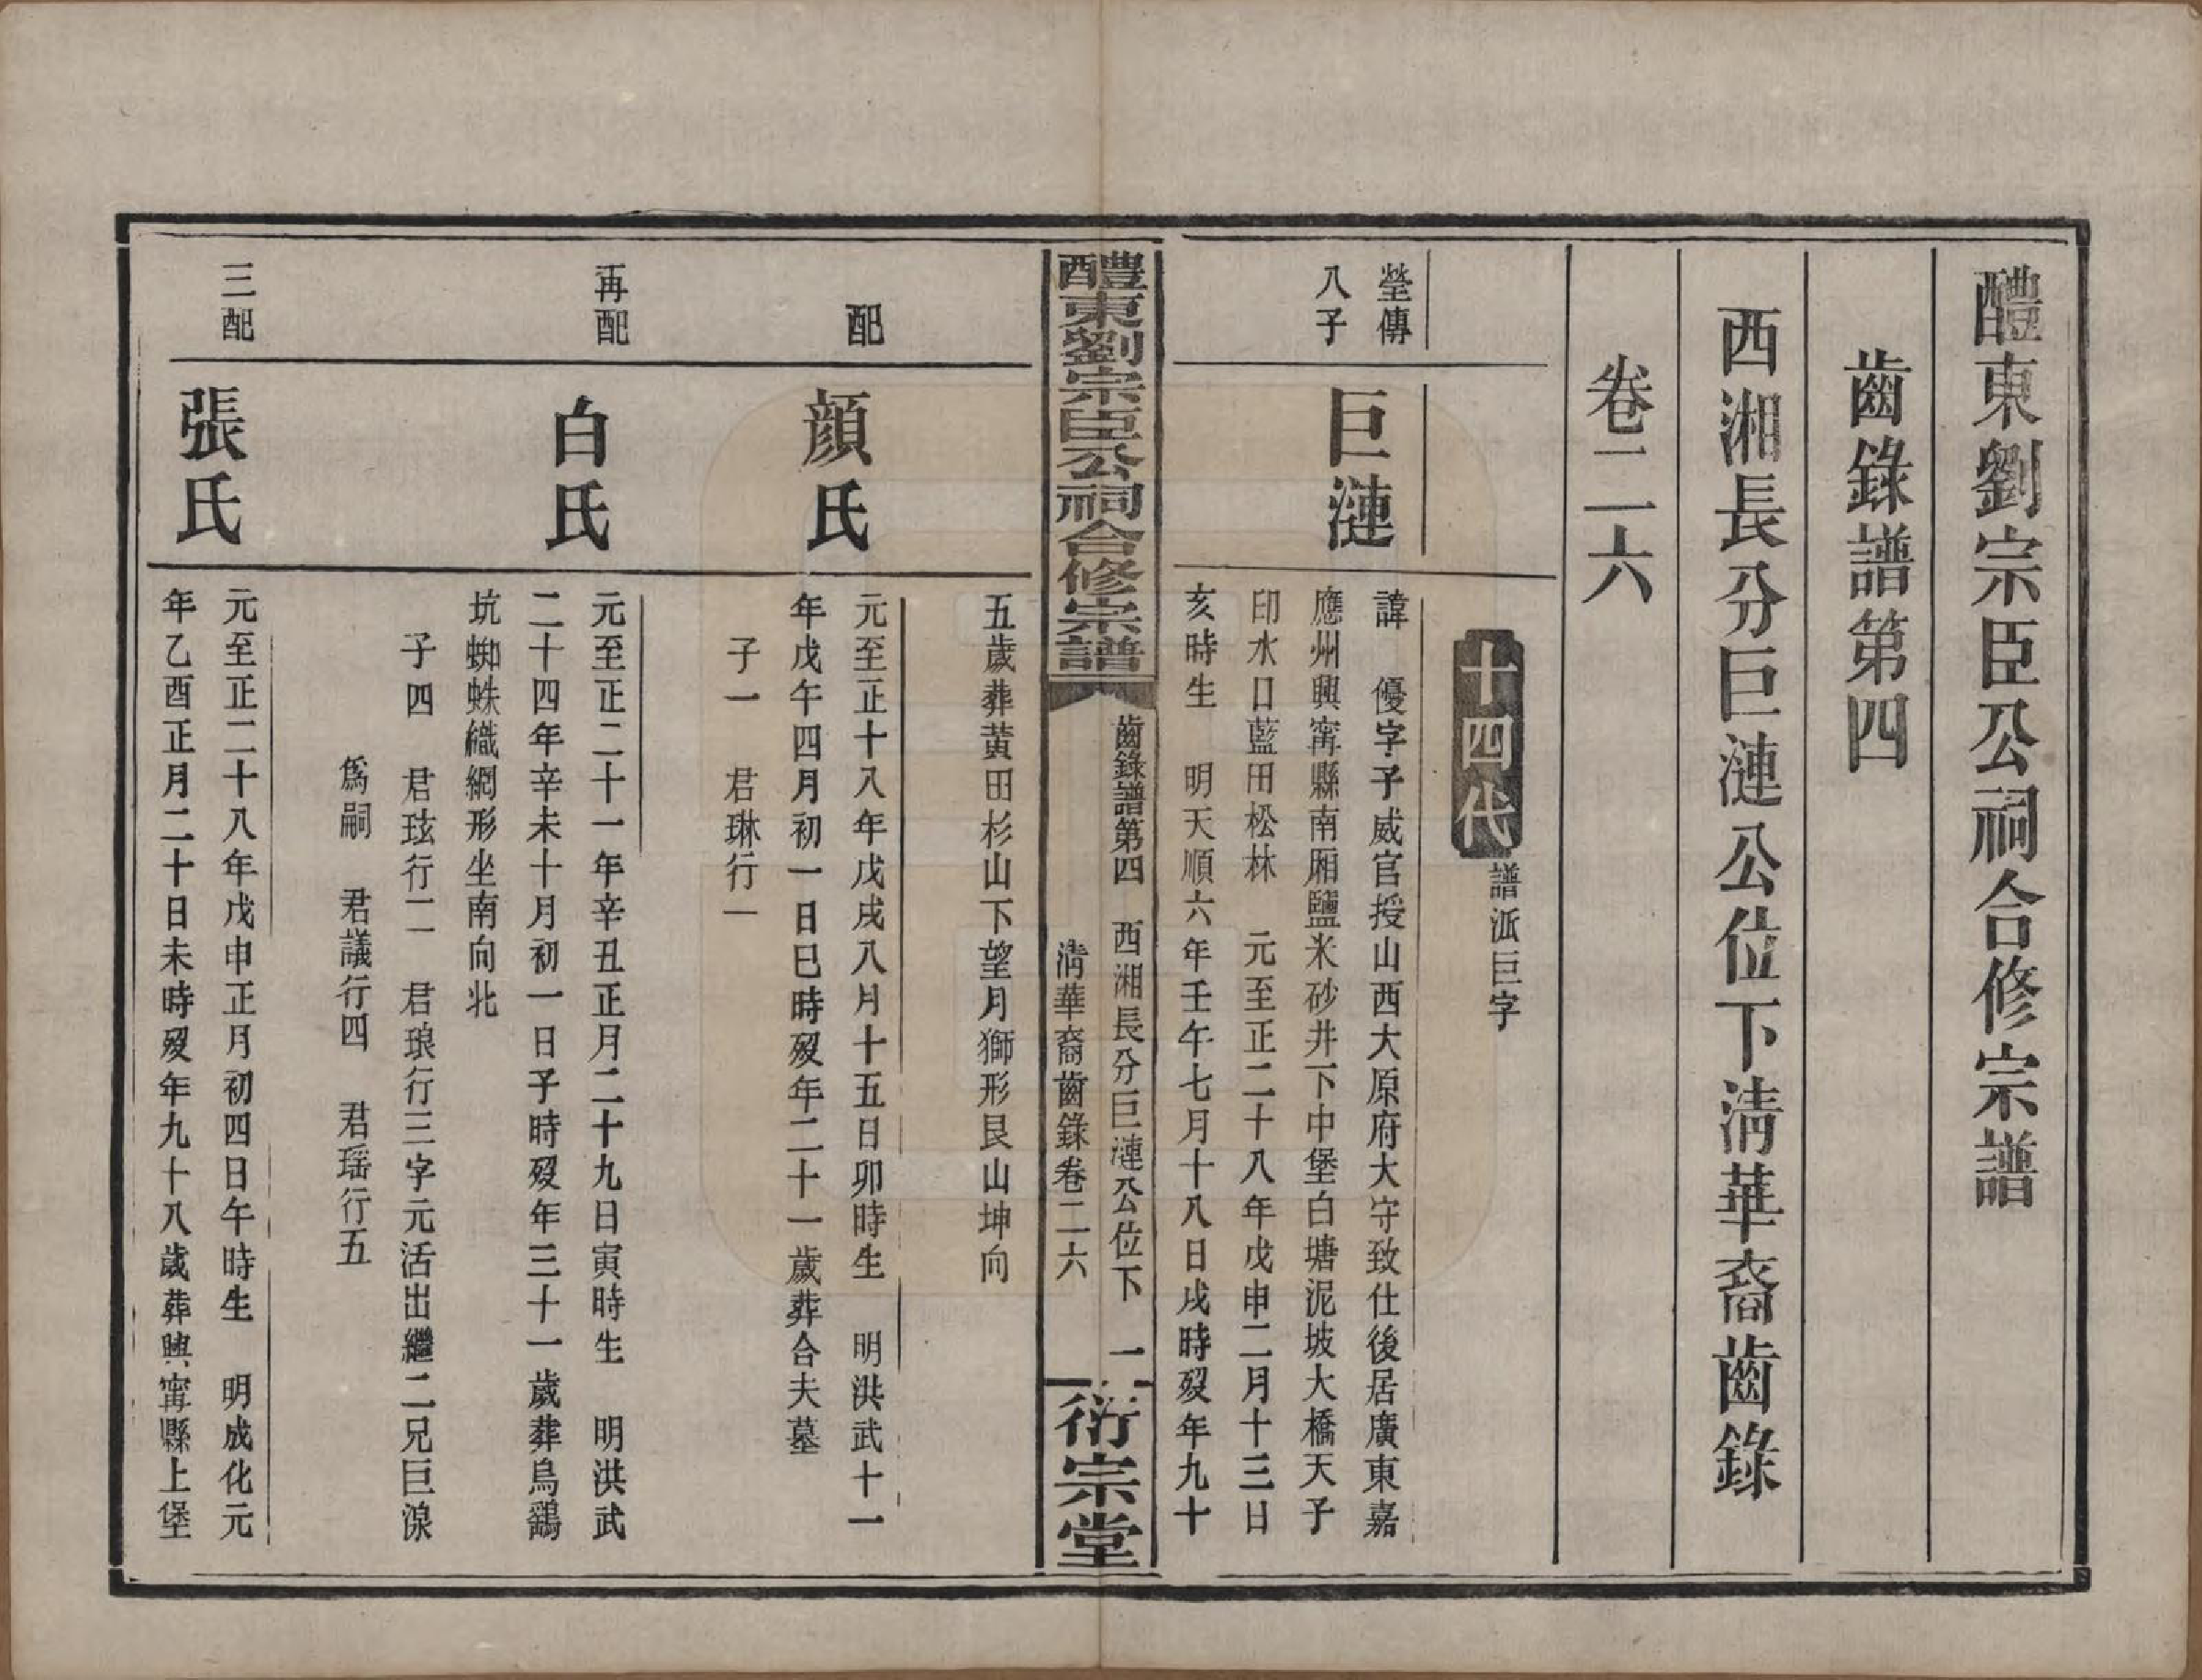 醴東劉宗臣公祠合修宗譜
齒錄譜第四
西湘長分巨漣公位下淸華裔齒錄
卷二六
十四代
譜派巨字
瑩傳
八子
巨漣
諱 優字子威官授山西大原府大守致仕後居廣東嘉
應州興甯縣南厢鹽米砂井下中堡白塘泥坡大橋天子
印水口藍田松林 元至正二十八年戊申二月十三日
亥時生 明天順六年壬午七月十八日戌時歿年九十
醴東劉宗臣公祠合修宗譜
齒錄譜第四 西湘長分巨漣公位下 一
淸華裔齒錄卷二六
衍宗堂
五歲葬黃田杉山下望月獅形艮山坤向
配
顏氏
元至正十八年戊戌八月十五日卯時生 明洪武十一
年戊午四月初一日巳時歿年二十一歲葬合夫墓
子一 君琳行一
再配
白氏
元至正二十一年辛丑正月二十九日寅時生 明洪武
二十四年辛未十月初一日子時歿年三十一歲葬烏鷄
坑蜘蛛織網形坐南向北
子四 君玹行二 君琅行三字元活出繼二兄巨湶
爲嗣 君議行四 君瑶行五
三配
張氏
元至正二十八年戊申正月初四日午時生 明成化元
年乙酉正月二十日未時歿年九十八歲葬興甯縣上堡